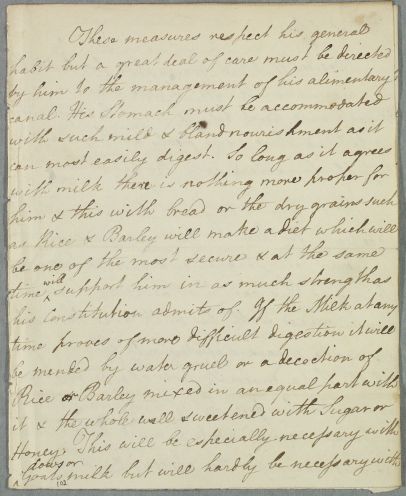 These measures respect his general
habit but a great deal of care must be directed
by him to the management of his alimentary
canal. His Stomach must be accommodated
with such mild & bland nourishment as it
can most easily digest. So long as it agrees
with milk there is nothing more proper for
him & this with bread or the dry grains such
as Rice & Barley will make a diet which will
be one of the most secure & at the same
time will support him in as much strength as
his Constitution admits of If the Milk at any
time proves of more difficult digestion it will
be mended by water gruel or a decoction of
Rice or Barley mixed in an equal part with
it & the whole well sweetened with Sugar or
Honey. This will be especially necessary with
Cows or
Goats milk but will hardly be necessary with